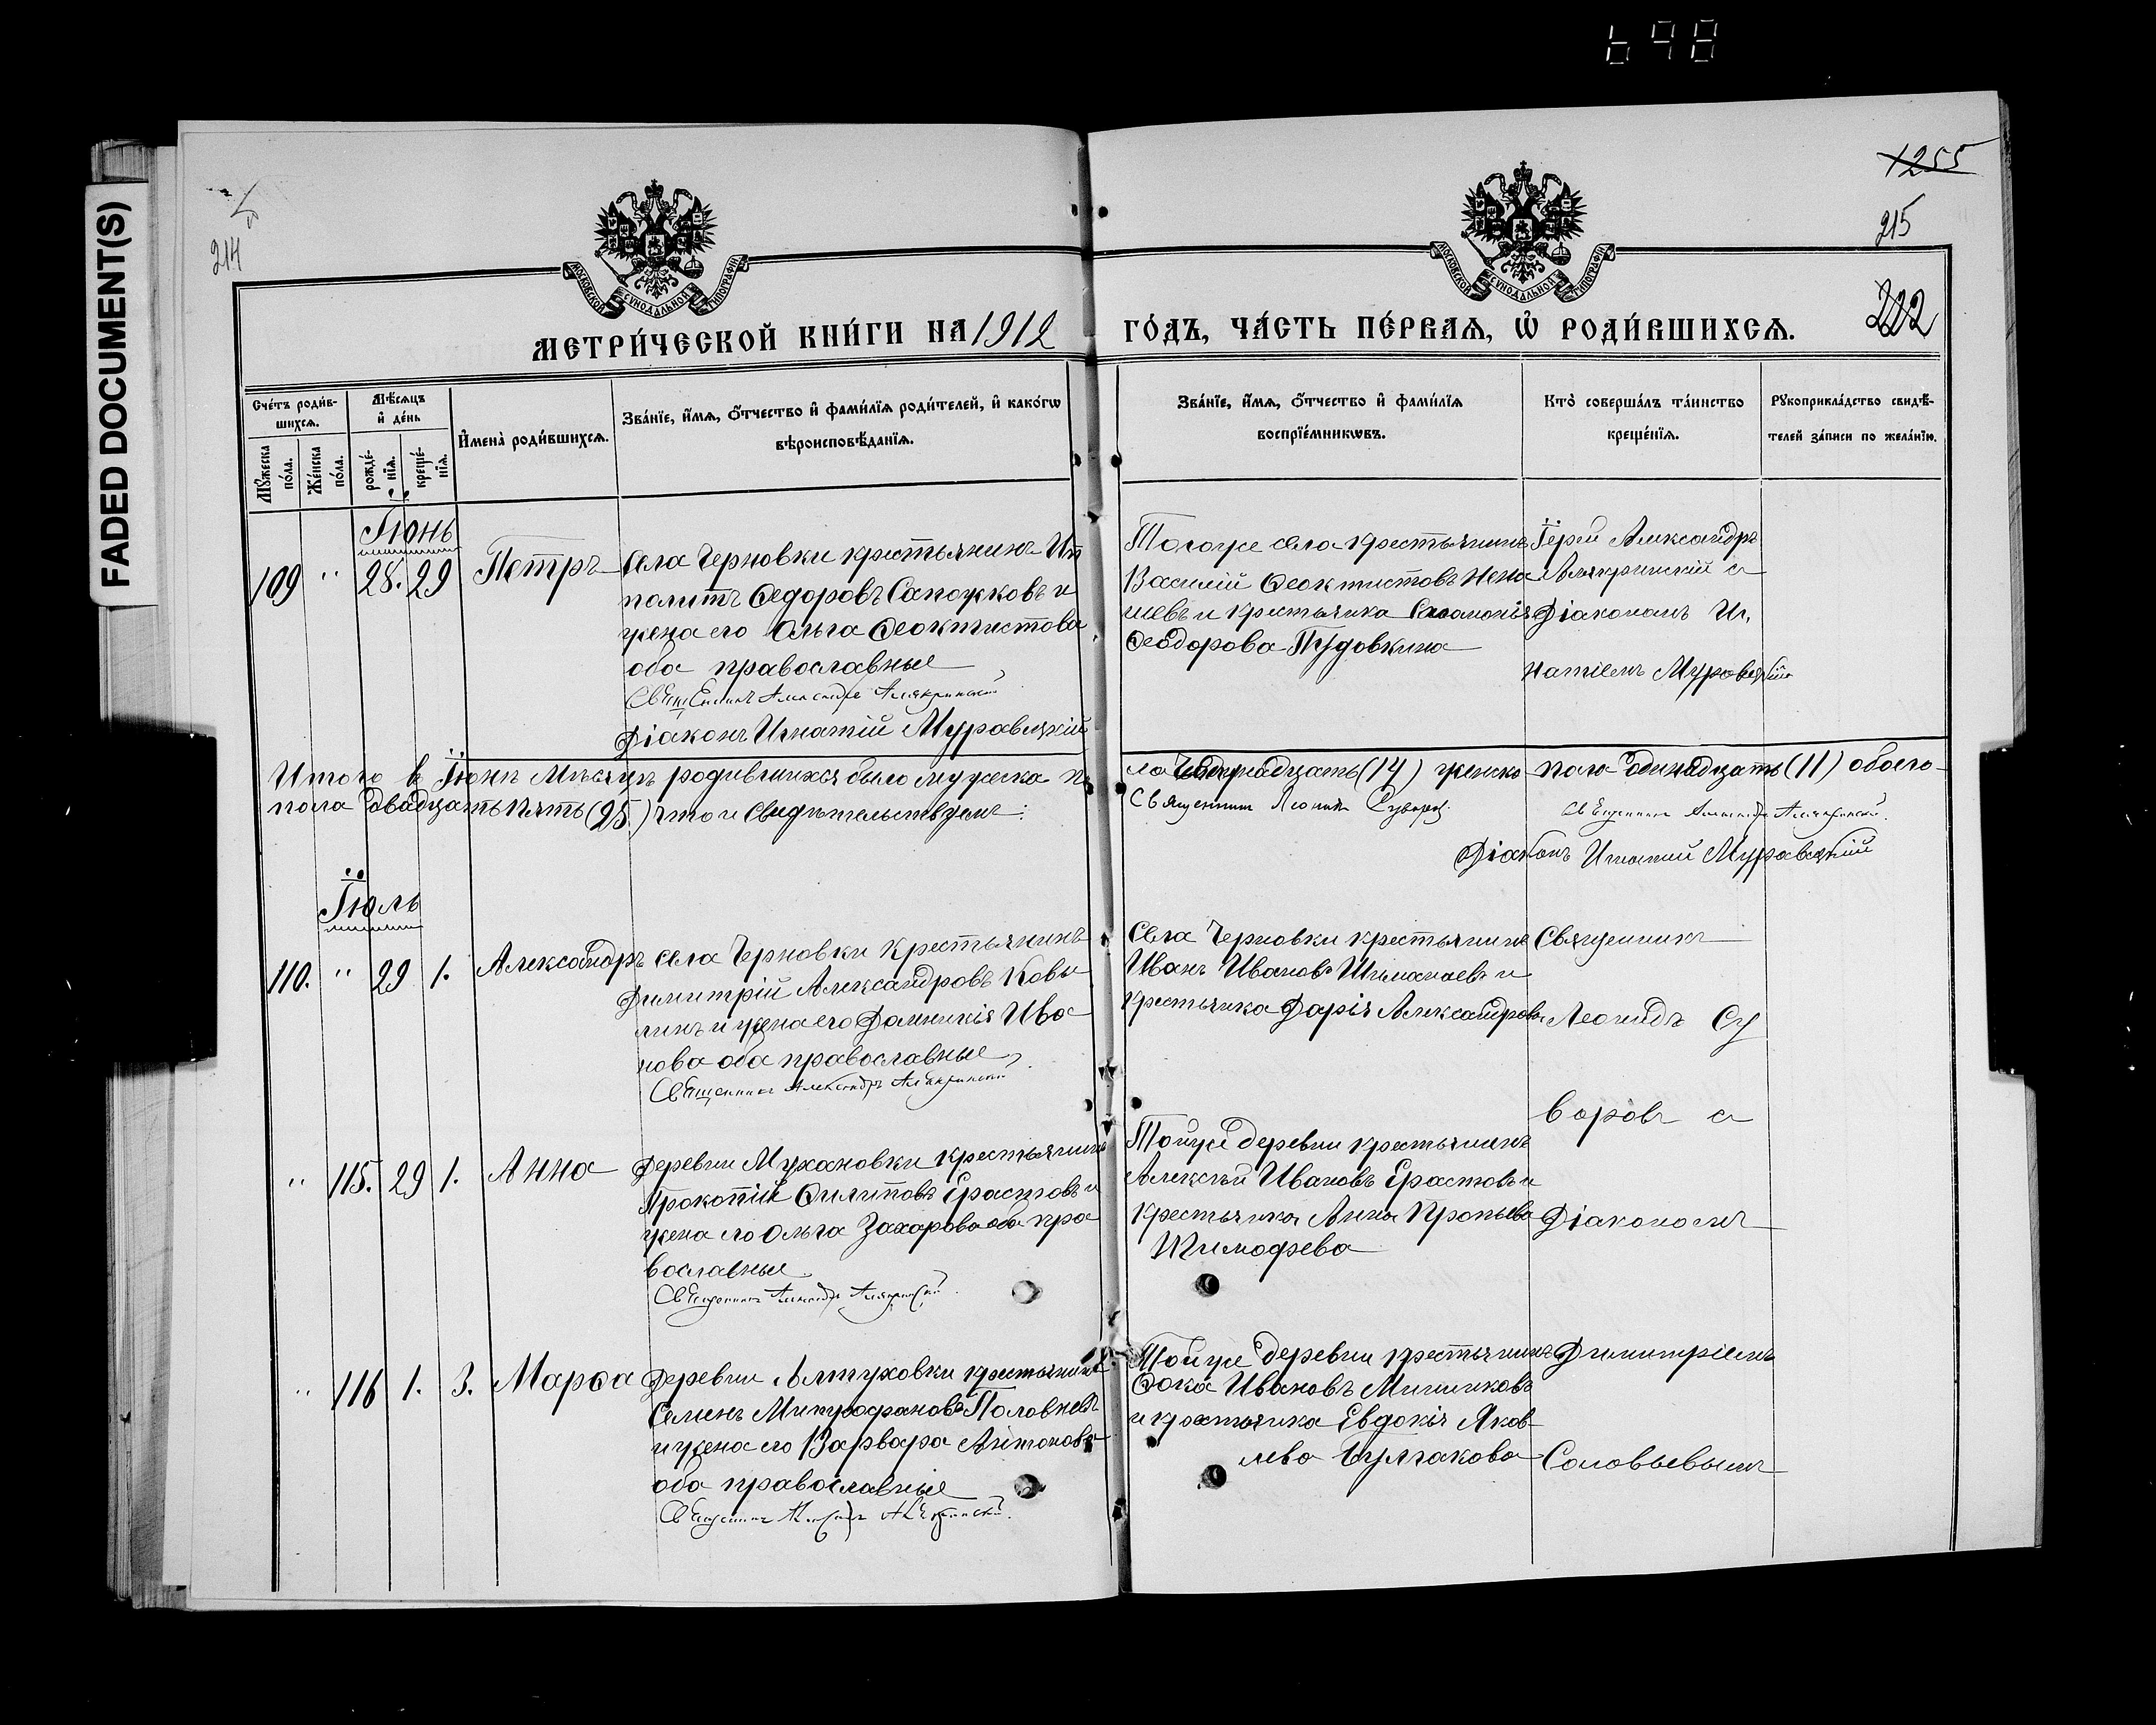 FADED DOCUMENT(S)
698
214
1255
215
222
МОСКОВСКОЙ СУНОДАЛЬНОЙ ТИПОГРАФІИ
МОСКОВСКОЙ СУНОДАЛЬНОЙ ТИПОГРАФІИ
МЕТРИ́ЧЕСКОЙ КНИ́ГИ НА 1912 ГО́ДЪ, ЧА́СТЬ ПЕ́РВАѦ, Ѡ҆ РОДИ́ВШИХСѦ.
Сче́тъ роди́в-
шихсѧ.
Мꙋ́жеска
по́ла.
Же́нска
по́ла.
Мѣ́сѧцъ
и҆ де́нь
рожде́-
нїѧ.
креще́-
нїѧ.
И҆мена̀ роди́вшихсѧ.
Зва́нїе, и҆́мѧ, ѻ҆́тчество и҆ фами́лїѧ роди́телей, и҆ како́гѡ
вѣроисповѣ́данїѧ.
Зва́нїе, и҆́мѧ, ѻ҆́тчество и҆ фами́лїѧ
воспрїе́мникѡвъ.
Кто̀ соверша́лъ та́инство
креще́нїѧ.
Рꙋкоприкла́дство свидѣ́-
телей за́писи по жела́нїю.
Іюнь
109 " 28. 29 Петръ
Села Черновки крестьянинъ Ип
политъ Ѳедоровъ Сапожковъ и
жена его Ольга Ѳеоктистова
оба православные
Священникъ Александръ Алякринскій
Діаконъ Игнатій Муравскій
Тогоже села крестьянинъ
Василій Ѳеоктистовъ Нена
шевъ и крестьянка Соломонія
Ѳеодорова Пудовкина
Іерей Александръ
Алякринскій с
Діакономъ Иг
натіемъ Муравскій
Итого в Іюнѣ Мѣсяцѣ родившихся было мужеска по
ла Четырнадцать (14) женска пола одинадцать (11) обоего
пола двадцать пять (25) что и свидѣтельствуемъ:
Священникъ Леонидъ Суворовъ
Священникъ Александръ Алякринскій.
Діаконъ Игнатій Муравскій
Іюль
110. " 29 1. Александръ
Села Черновки крестьянинъ
Димитрій Александровъ Ковы
линъ и жена его Домникія Ива
нова оба православные
Священникъ Александръ Алякринскій
Села Черновки крестьянинъ
Иванъ Ивановъ и
крестьянка Дарія Александрова
Священникъ
Леонидъ Су
воровъ с
" 115. 29 1. Анна
Деревни Мухановки крестьянинъ
Прокопій Филиповъ Ерастовъ и
жена его Ольга Захарова оба пра
вославные
Священникъ Александръ Алякринскій.
Тойже деревни крестьянинъ
Алексѣй Ивановъ Ерастовъ и
крестьянка Анна
Тимофеева
Діакономъ
" 116 1. 3. Марѳа
Деревни Алтуховки крестьянинъ
Семенъ Митрофановъ Половневъ
и жена его Варвара Антонова
оба православные
Священникъ Александръ Алякринскій.
Тойже деревни крестьянинъ
Ѳока Ивановъ Мишинковъ
и крестьянка Евдокія Яков
лева Булгакова
Димитріемъ
Соловьевымъ